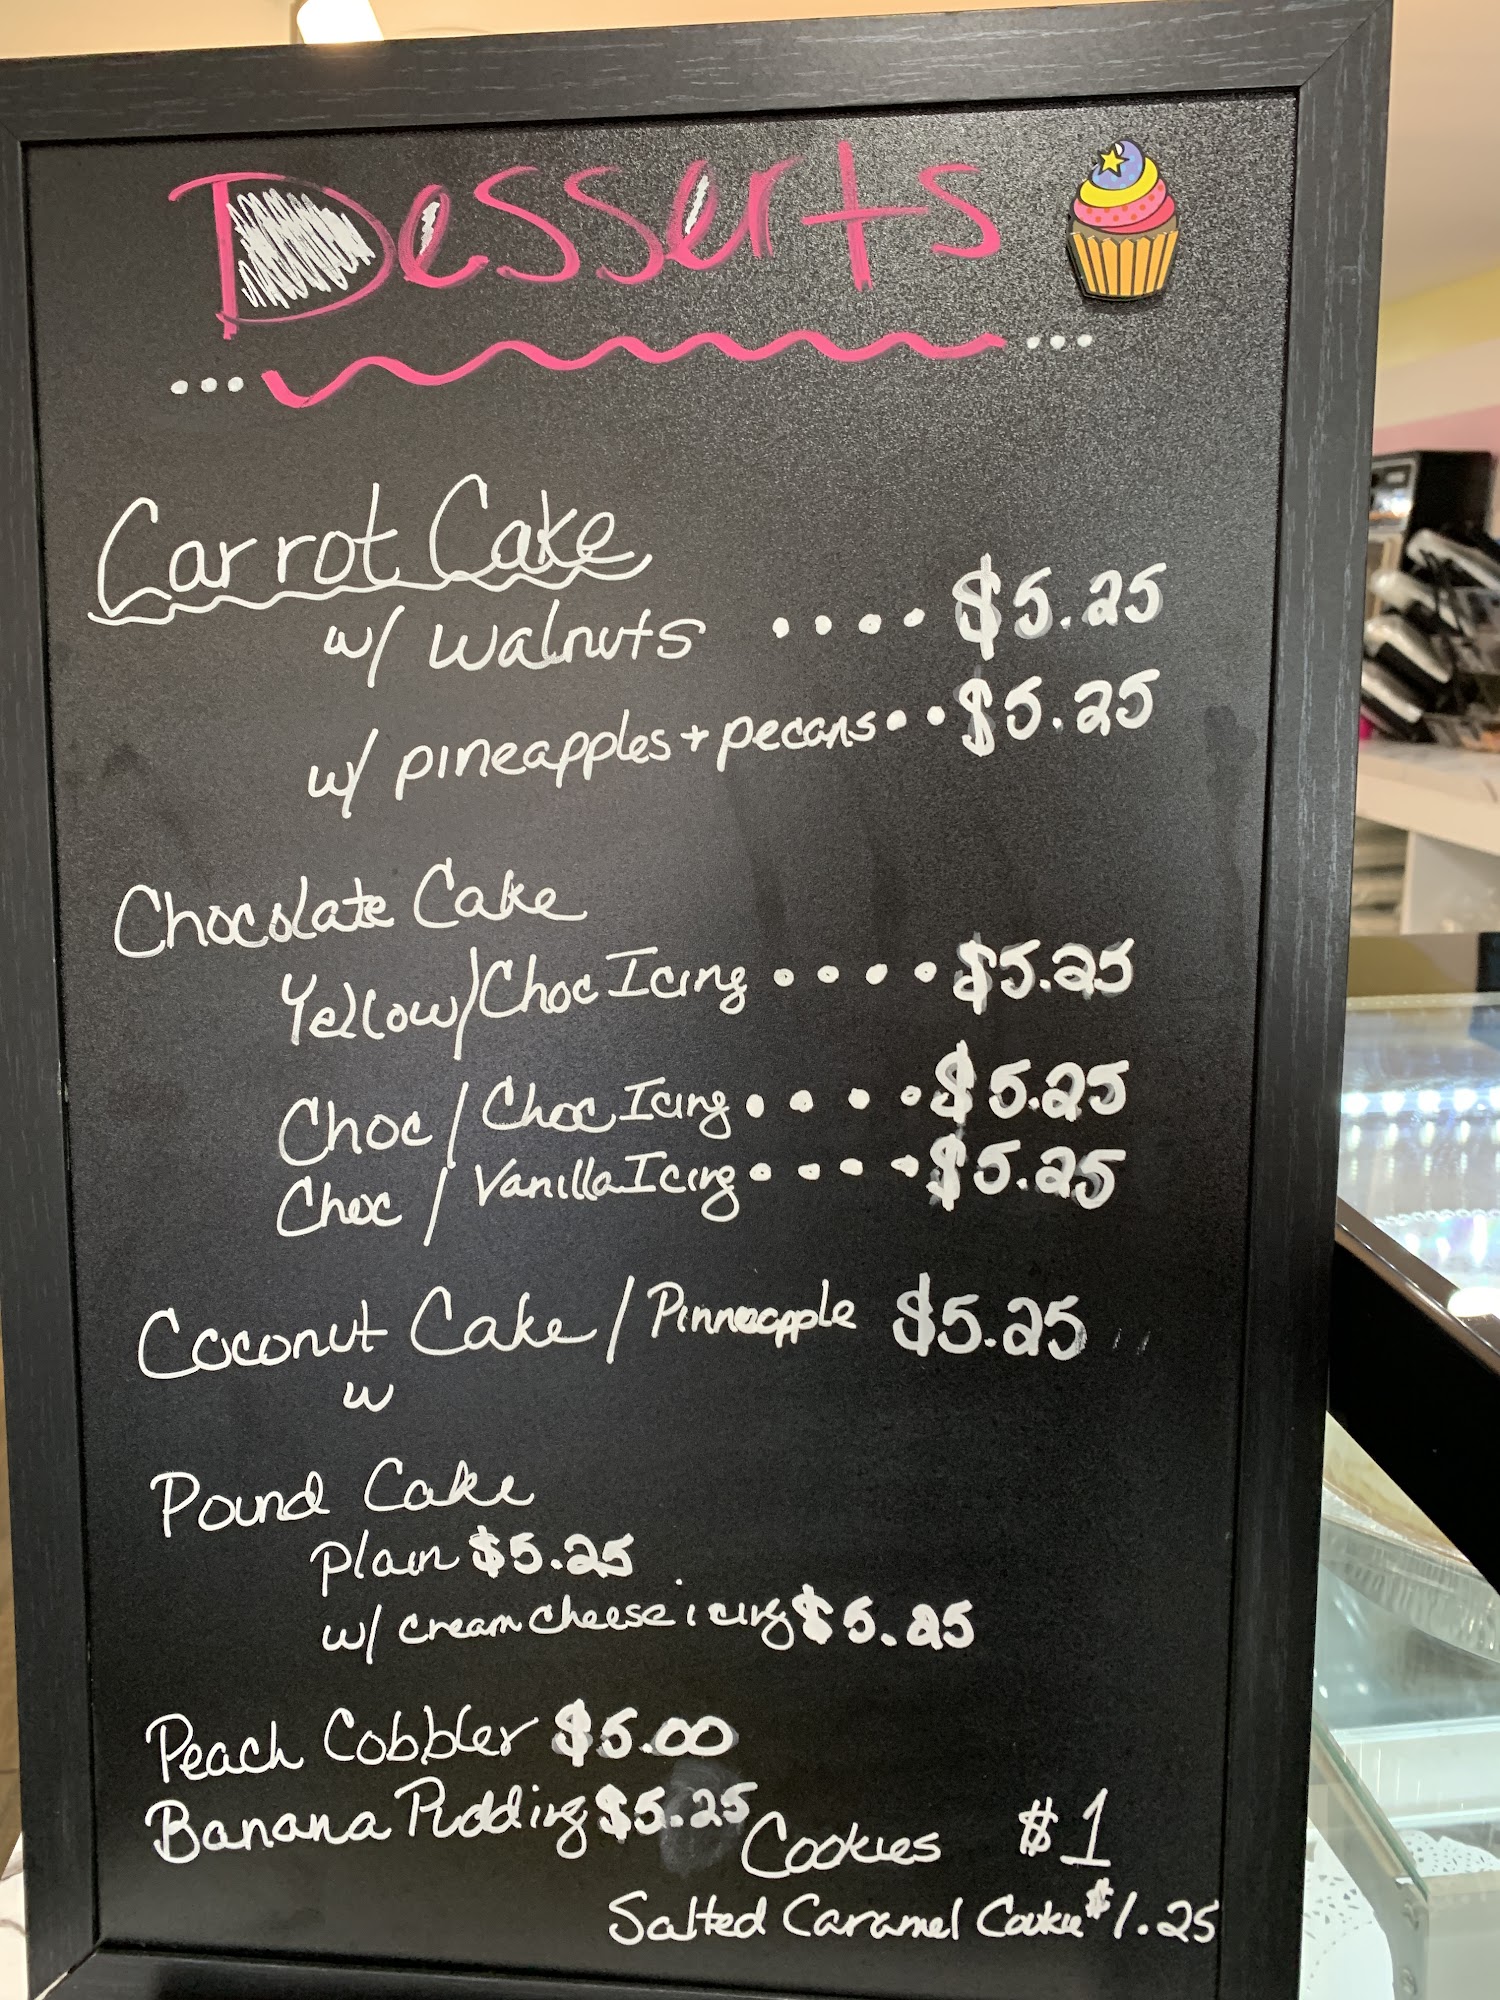 Desserts
Carrot Cake
w/ walnuts .... $5.25
w/ pineapples + pecans .. $5.25
Chocolate Cake
Yellow/Choc Icing .... $5.25
Choc / Choc Icing .... $5.25
Choc / Vanilla Icing .... $5.25
Coconut Cake / Pinneapple $5.25
w
Pound Cake
plain $5.25
w/ cream cheese icing $5.25
Peach Cobbler $5.00
Banana Pudding $5.25
Cookies $1
Salted Caramel Cookie $1.25